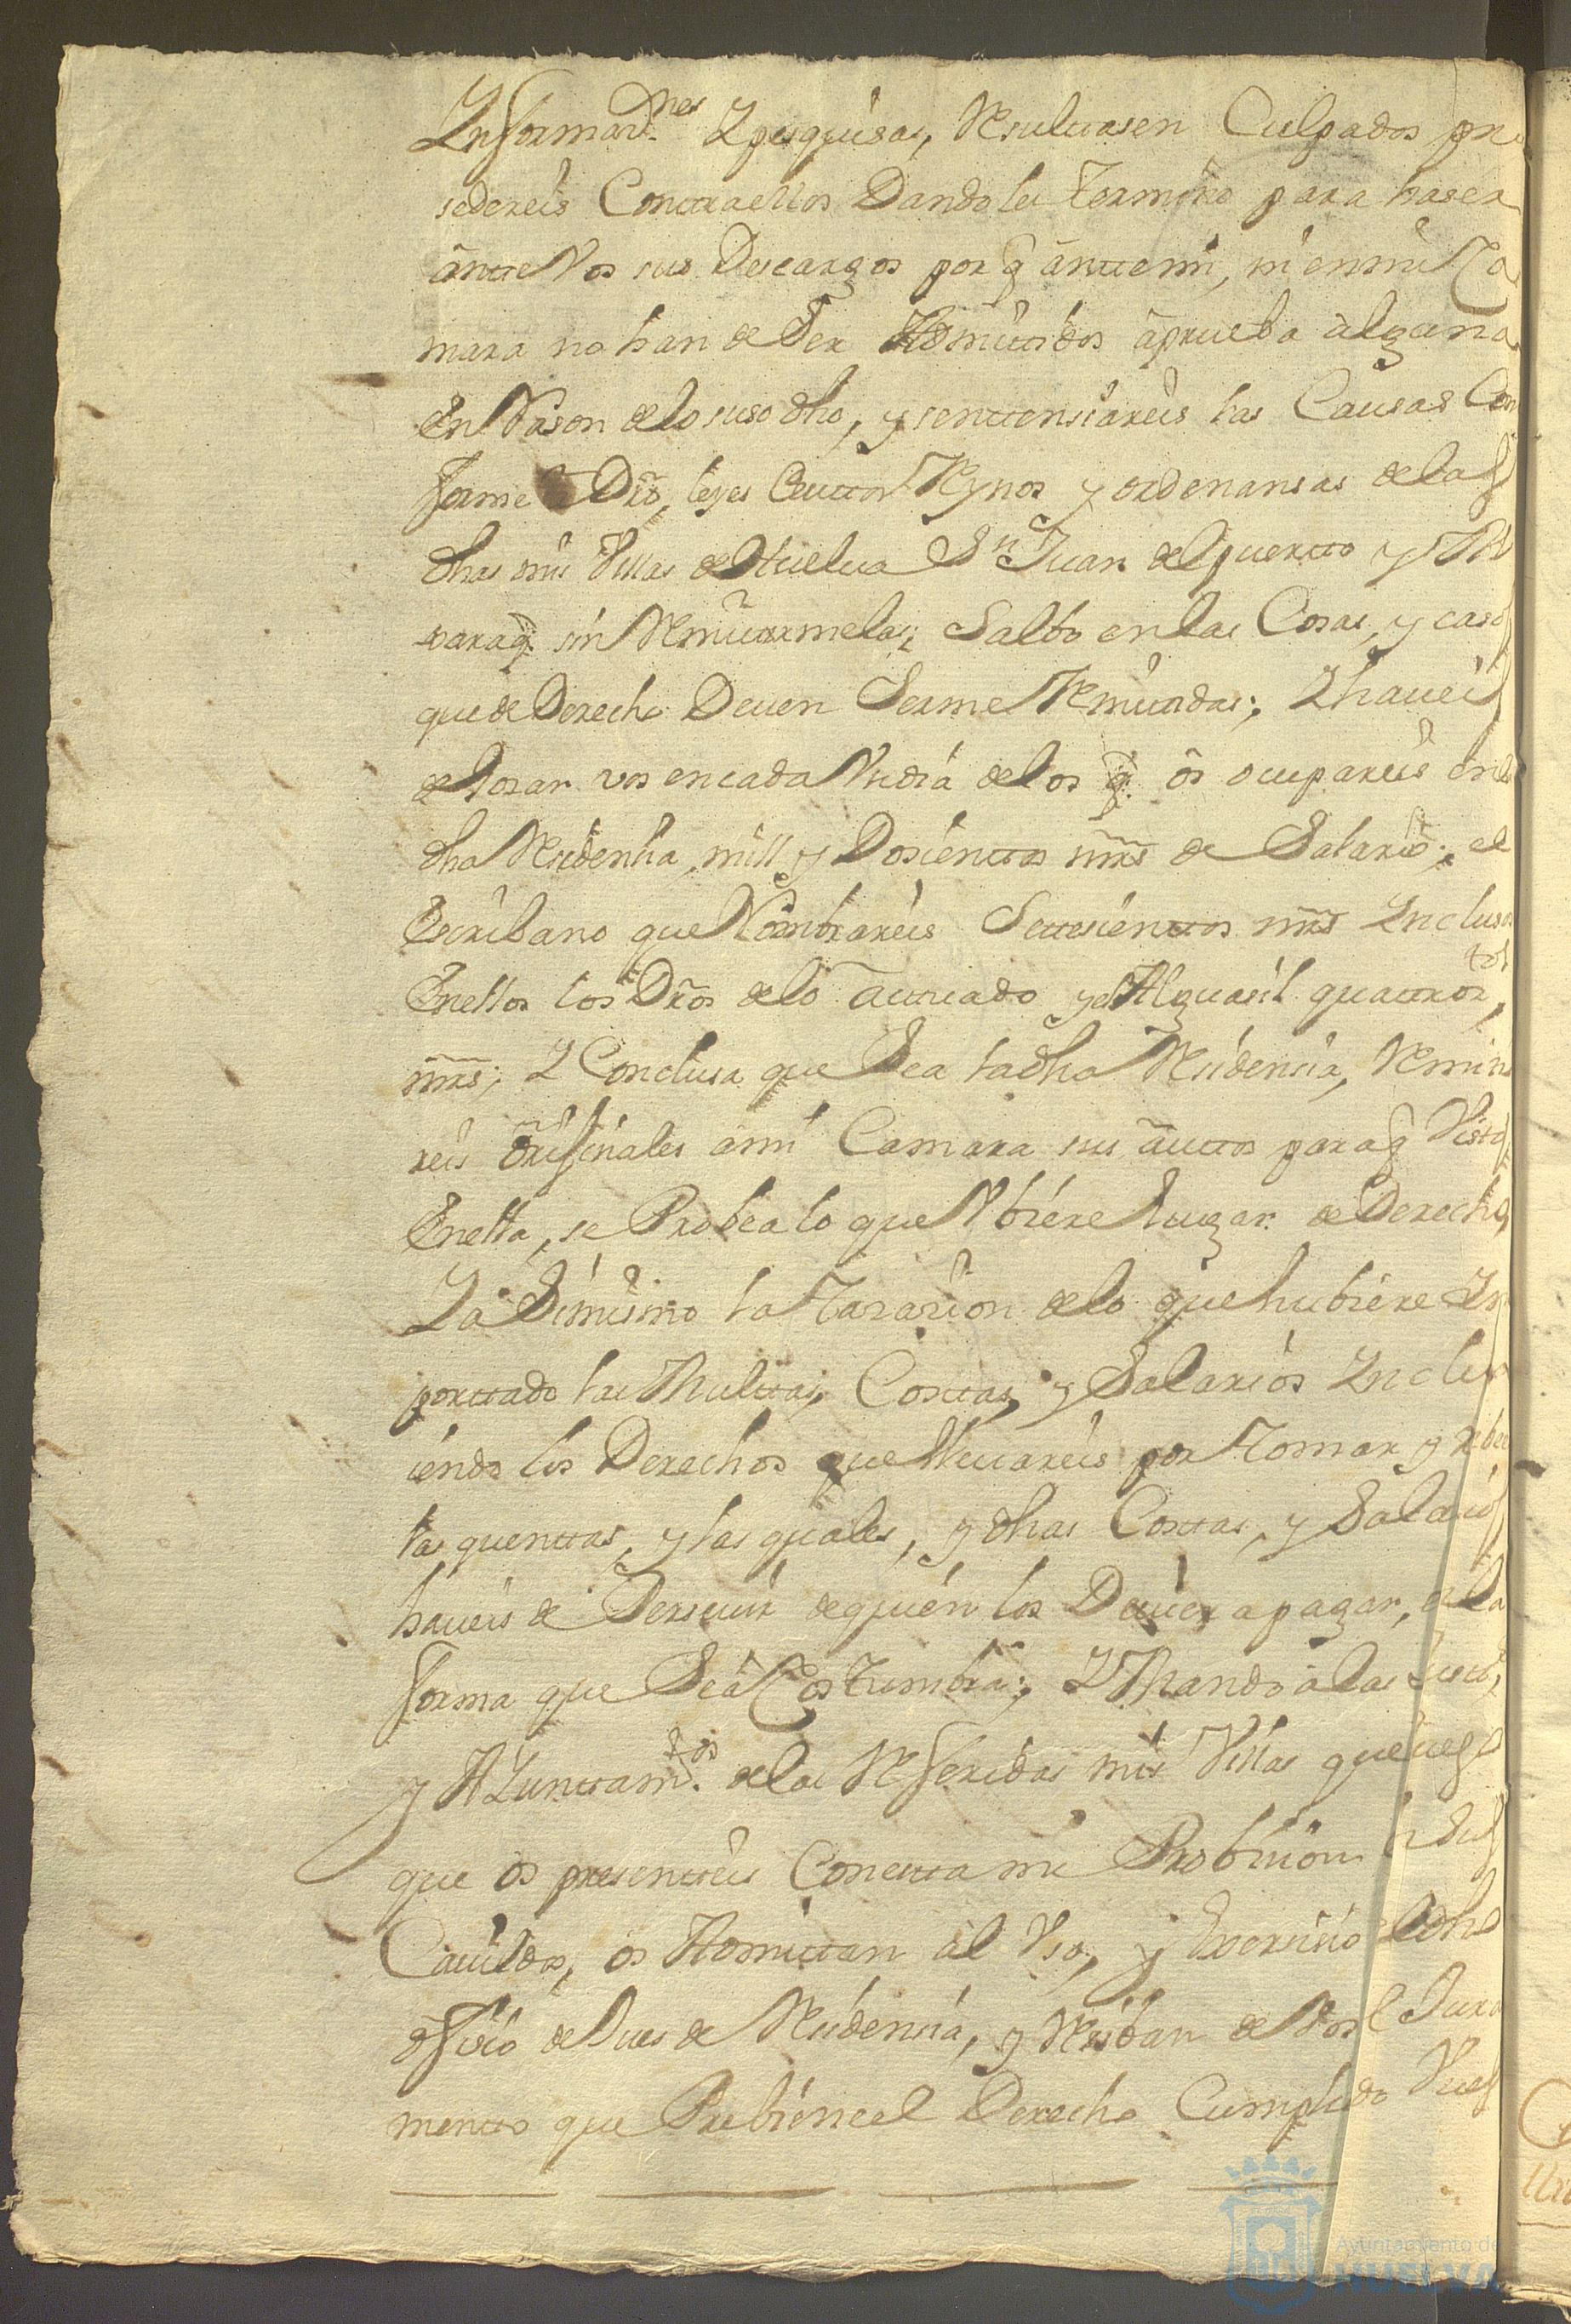 Informac.nes Y pesquisas, Resultasen Culpados pro
sedereis Contraellos Dandoles termino para haser
ante Vos sus Descargos por q̃ antemi, ni enmi Ca
mara no han de Ser Admitidos a prueba alguna
En Rason delo suso dho, y sentensiareis las Causas Con
forme a Dro, leyes destos Reynos y ordenansas delas
dhas mis Villas de Huelua Sn Juan del puerto y
paraq̃ sin Remitirmelas; Salbo en las Cosas, y casos
que de Derecho Deuen Serme Remitidas; Y haueis
de Gosar vos encada Vn dia de los q̃ os ocupareis en la
dha Residensia, mill y Dosientos mrs de Salario; el
Escribano que Nombrareis Setesientos mrs Inclusos
Enellos los Dros delo autuado y el Alguasil quatros.tos
mrs; Y Conclusa que Sea la dha Residensia, Remiti
reis originales ami Camara sus autos paraq̃ Vistos
Enella, se Probea lo que Vbiere lugar de Derecho
Y aSimismo la Tasasion delo que hubiere Im
portado las Multas, Costas, y Salarios Inclu
iendo los Derechos que lleuareis por Tomar y Reber
las quentas, y las quales, y dhas Costas, y Salarios
haueis de Perseuir de quien los Deuiere pagar, en la
forma que Sea Costumbre; Y Mando a las Justs,
y AYuntam.tos delas Referidas mis Villas que luego
que os presenteis Conesta mi Probision en sus
Cauildos, os Admitan al Vso, y Exersisio del dho
ofisio de Jues de Residensia, y Resiban de Vos el Jura
mento que Prebiene el Derecho Cumplido
Ayuntamiento de
HUELVA